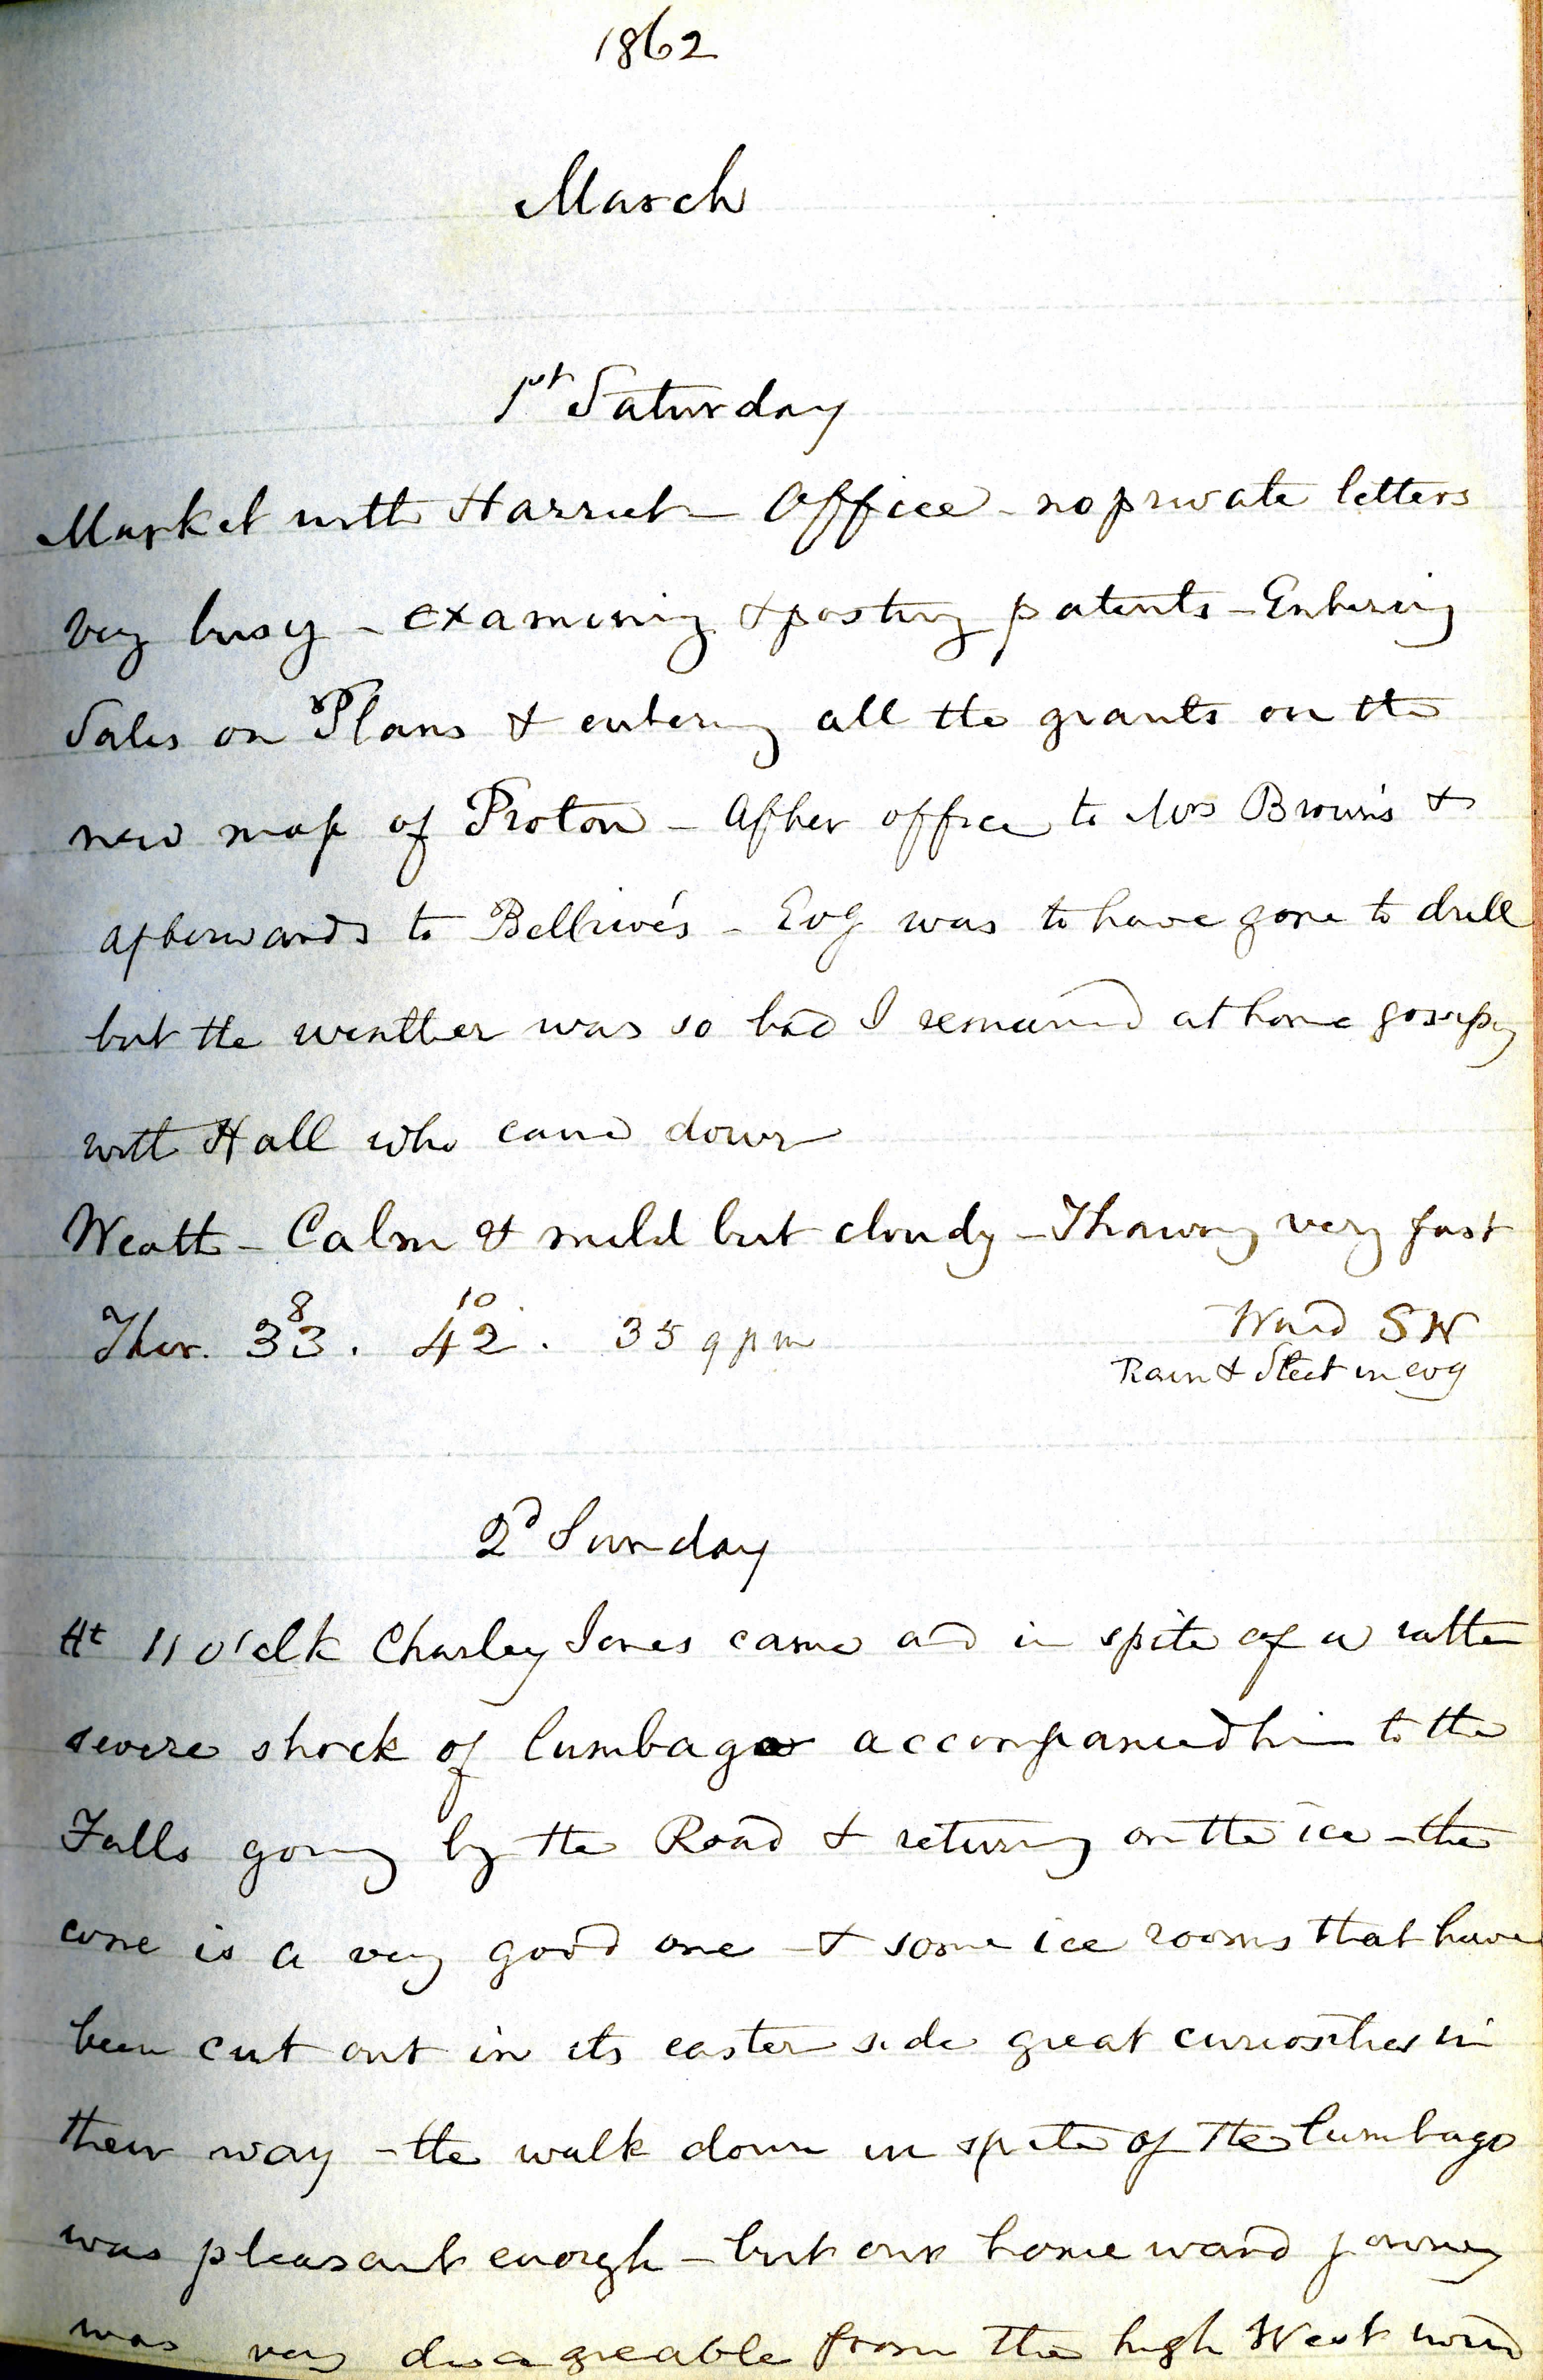 1862
March
1st Saturday
Market with Harriet - Office - no private letters
very busy - examining & posting patents - Entering
Sales on Plans & entering all the grants on the
new map of Proton - After office to Mrs Brown's &
afterwards to Bellrive's - Evg was to have gone to drill
but the weather was so bad I remained at home gossiping
with Hall who came down
Weathr - Calm & mild but cloudy - Thawing very fast
8 10
Ther. 33. 42. 35 9 pm
Wind SW
Rain & Sleet in evg
2d Sunday
At 11 o'clk Charley Jones came and in spite of a rather
severe shock of lumbago accompanied him to the
Falls going by the Road & returning on the ice - the
cone is a very good one - & some ice rooms that have
been cut out in its eastern side great curiosities in
their way - the walk down in spite of the lumbago
was pleasant enough - but our homeward journey
was very disagreable from the high West wind